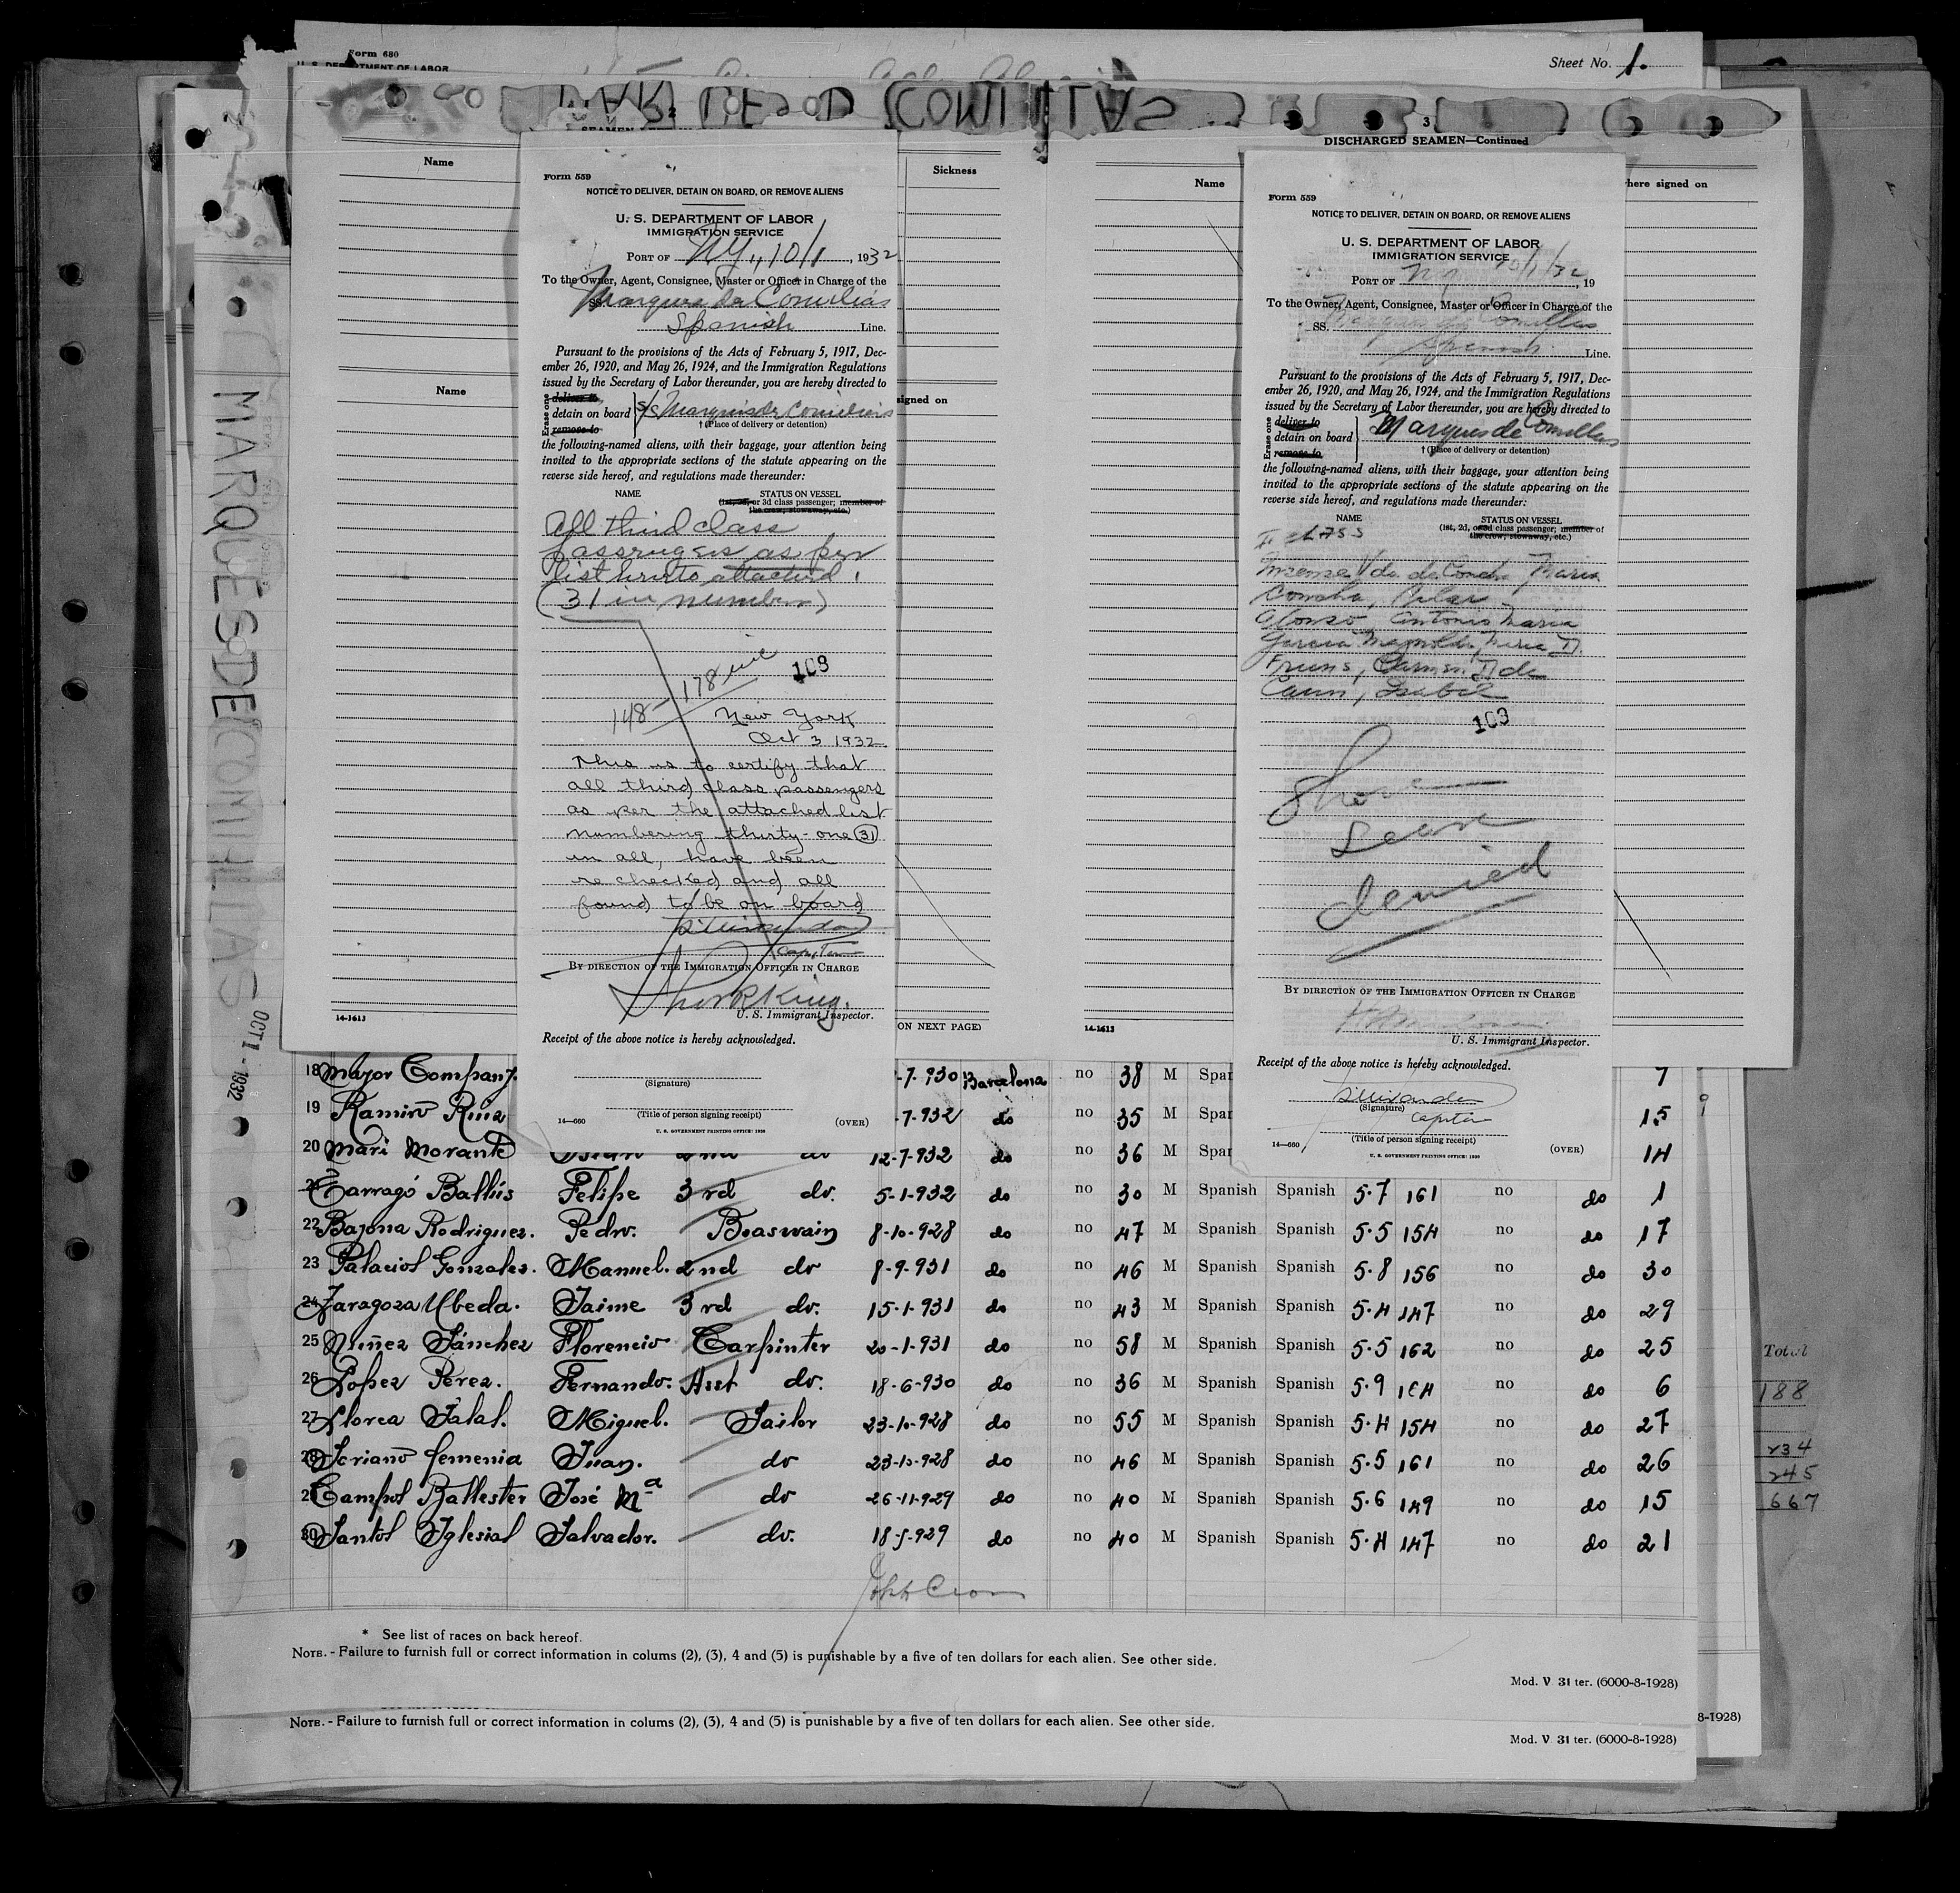 Form 680
U. S. DEPARTMENT OF LABOR
Sheet No. 1.
MARQUÉS DE COMILLAS
OCT 1 - 1932
Name
Sickness
Name
signed on
14-1613
(ON NEXT PAGE)
3
DISCHARGED SEAMEN—Continued
Name
where signed on
14-1613
Form 559
NOTICE TO DELIVER, DETAIN ON BOARD, OR REMOVE ALIENS
U. S. DEPARTMENT OF LABOR
IMMIGRATION SERVICE
PORT OF NY., 10/1, 1932
To the Owner, Agent, Consignee, Master or Officer in Charge of the
SS. Marques de Comillas
Spanish Line.
Pursuant to the provisions of the Acts of February 5, 1917, Dec-
ember 26, 1920, and May 26, 1924, and the Immigration Regulations
issued by the Secretary of Labor thereunder, you are hereby directed to
Erase one
deliver to
detain on board
remove to
S/S Marques de Comillas
† (Place of delivery or detention)
the following-named aliens, with their baggage, your attention being
invited to the appropriate sections of the statute appearing on the
reverse side hereof, and regulations made thereunder:
NAME STATUS ON VESSEL
(1st, 2d, or 3d class passenger; member of
the crew; stowaway, etc.)
All third class
passengers as per
list hereto attached.
(31 in number)
178
103
148
New York
Oct 3 1932
This is to certify that
all third class passengers
as per the attached list
numbering thirty-one (31)
in all, have been
re checked and all
found to be on board
Capitan
BY DIRECTION OF THE IMMIGRATION OFFICER IN CHARGE
King.
U. S. Immigrant Inspector.
Receipt of the above notice is hereby acknowledged.
(Signature)
(Title of person signing receipt)
14—660
(OVER)
U. S. GOVERNMENT PRINTING OFFICE: 1930
Form 559
NOTICE TO DELIVER, DETAIN ON BOARD, OR REMOVE ALIENS
U. S. DEPARTMENT OF LABOR
IMMIGRATION SERVICE
PORT OF N.Y. 10/1/32, 19
To the Owner, Agent, Consignee, Master or Officer in Charge of the
SS. Marques de Comillas
Spanish Line.
Pursuant to the provisions of the Acts of February 5, 1917, Dec-
ember 26, 1920, and May 26, 1924, and the Immigration Regulations
issued by the Secretary of Labor thereunder, you are hereby directed to
Erase one
deliver to
detain on board
remove to
Marques de Comillas
† (Place of delivery or detention)
the following-named aliens, with their baggage, your attention being
invited to the appropriate sections of the statute appearing on the
reverse side hereof, and regulations made thereunder:
NAME STATUS ON VESSEL
(1st, 2d, or 3d class passenger; member of
the crew; stowaway, etc.)
II CLASS
Vda. de Concha Maria
Concha, Pilar
Alonso, Antonio Maria
Garcia Maria D.
Carmen D de
Isabel
103
Shore
Leave
denied
BY DIRECTION OF THE IMMIGRATION OFFICER IN CHARGE
U. S. Immigrant Inspector.
Receipt of the above notice is hereby acknowledged.
(Signature)
Capitan
(Title of person signing receipt)
14—660
(OVER)
U. S. GOVERNMENT PRINTING OFFICE: 1930
18 Mayor Company. -7-930 Barcelona no 38 M Spar 7
19 Ramiro Ruiz -7-932 do no 35 M Spar 15
20 Mari Morante 12-7-932 do no 36 M Spar 14
21 Tarragó Balliús Felipe 3rd do. 5-1-932 do no 30 M Spanish Spanish 5.7 161 no do 1
22 Bajona Rodriguez. Pedro. Boaswain 8-10-928 do no 47 M Spanish Spanish 5.5 154 no do 17
23 Palacios Gonzales. Manuel. 2nd do 8-9-931 do no 46 M Spanish Spanish 5.8 156 no do 30
24 Zaragoza Ubeda. Jaime 3rd do. 15-1-931 do no 43 M Spanish Spanish 5.4 147 no do 29
25 Nuñez Sánchez Florencio Carpinter 20-1-931 do no 58 M Spanish Spanish 5.5 162 no do 25
26 Lopez Perez. Fernando. Asst do. 18-6-930 do no 36 M Spanish Spanish 5.9 164 no do 6
27 Llorca Salas. Miguel. Sailor 23-10-928 do no 55 M Spanish Spanish 5.4 154 no do 27
28 Soriano Jemenia Juan. do 23-10-928 do no 46 M Spanish Spanish 5.5 161 no do 26
29 Campos Ballester José Mª do 26-11-929 do no 40 M Spanish Spanish 5.6 149 no do 15
30 Santos Iglesias Salvador. do. 18-5-929 do no 40 M Spanish Spanish 5.4 147 no do 21
Total
188
234
245
667
* See list of races on back hereof.
NOTE. - Failure to furnish full or correct information in colums (2), (3), 4 and (5) is punishable by a five of ten dollars for each alien. See other side.
Mod. V 31 ter. (6000-8-1928)
NOTE. - Failure to furnish full or correct information in colums (2), (3), 4 and (5) is punishable by a five of ten dollars for each alien. See other side.
8-1928)
Mod. V 31 ter. (6000-8-1928)